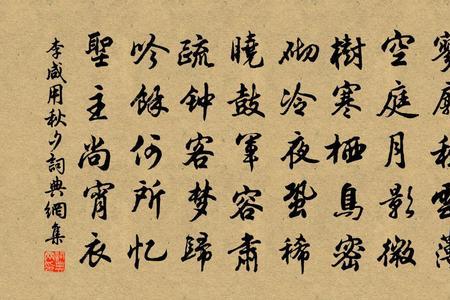 寥廓秋雲薄
空庭月影微
樹寒栖鳥密
砌冷夜蛩稀
曉鼓軍容肅
疏钟客梦歸
吟餘何所忆
聖主尚宵衣
李咸用秋夕詞典網集